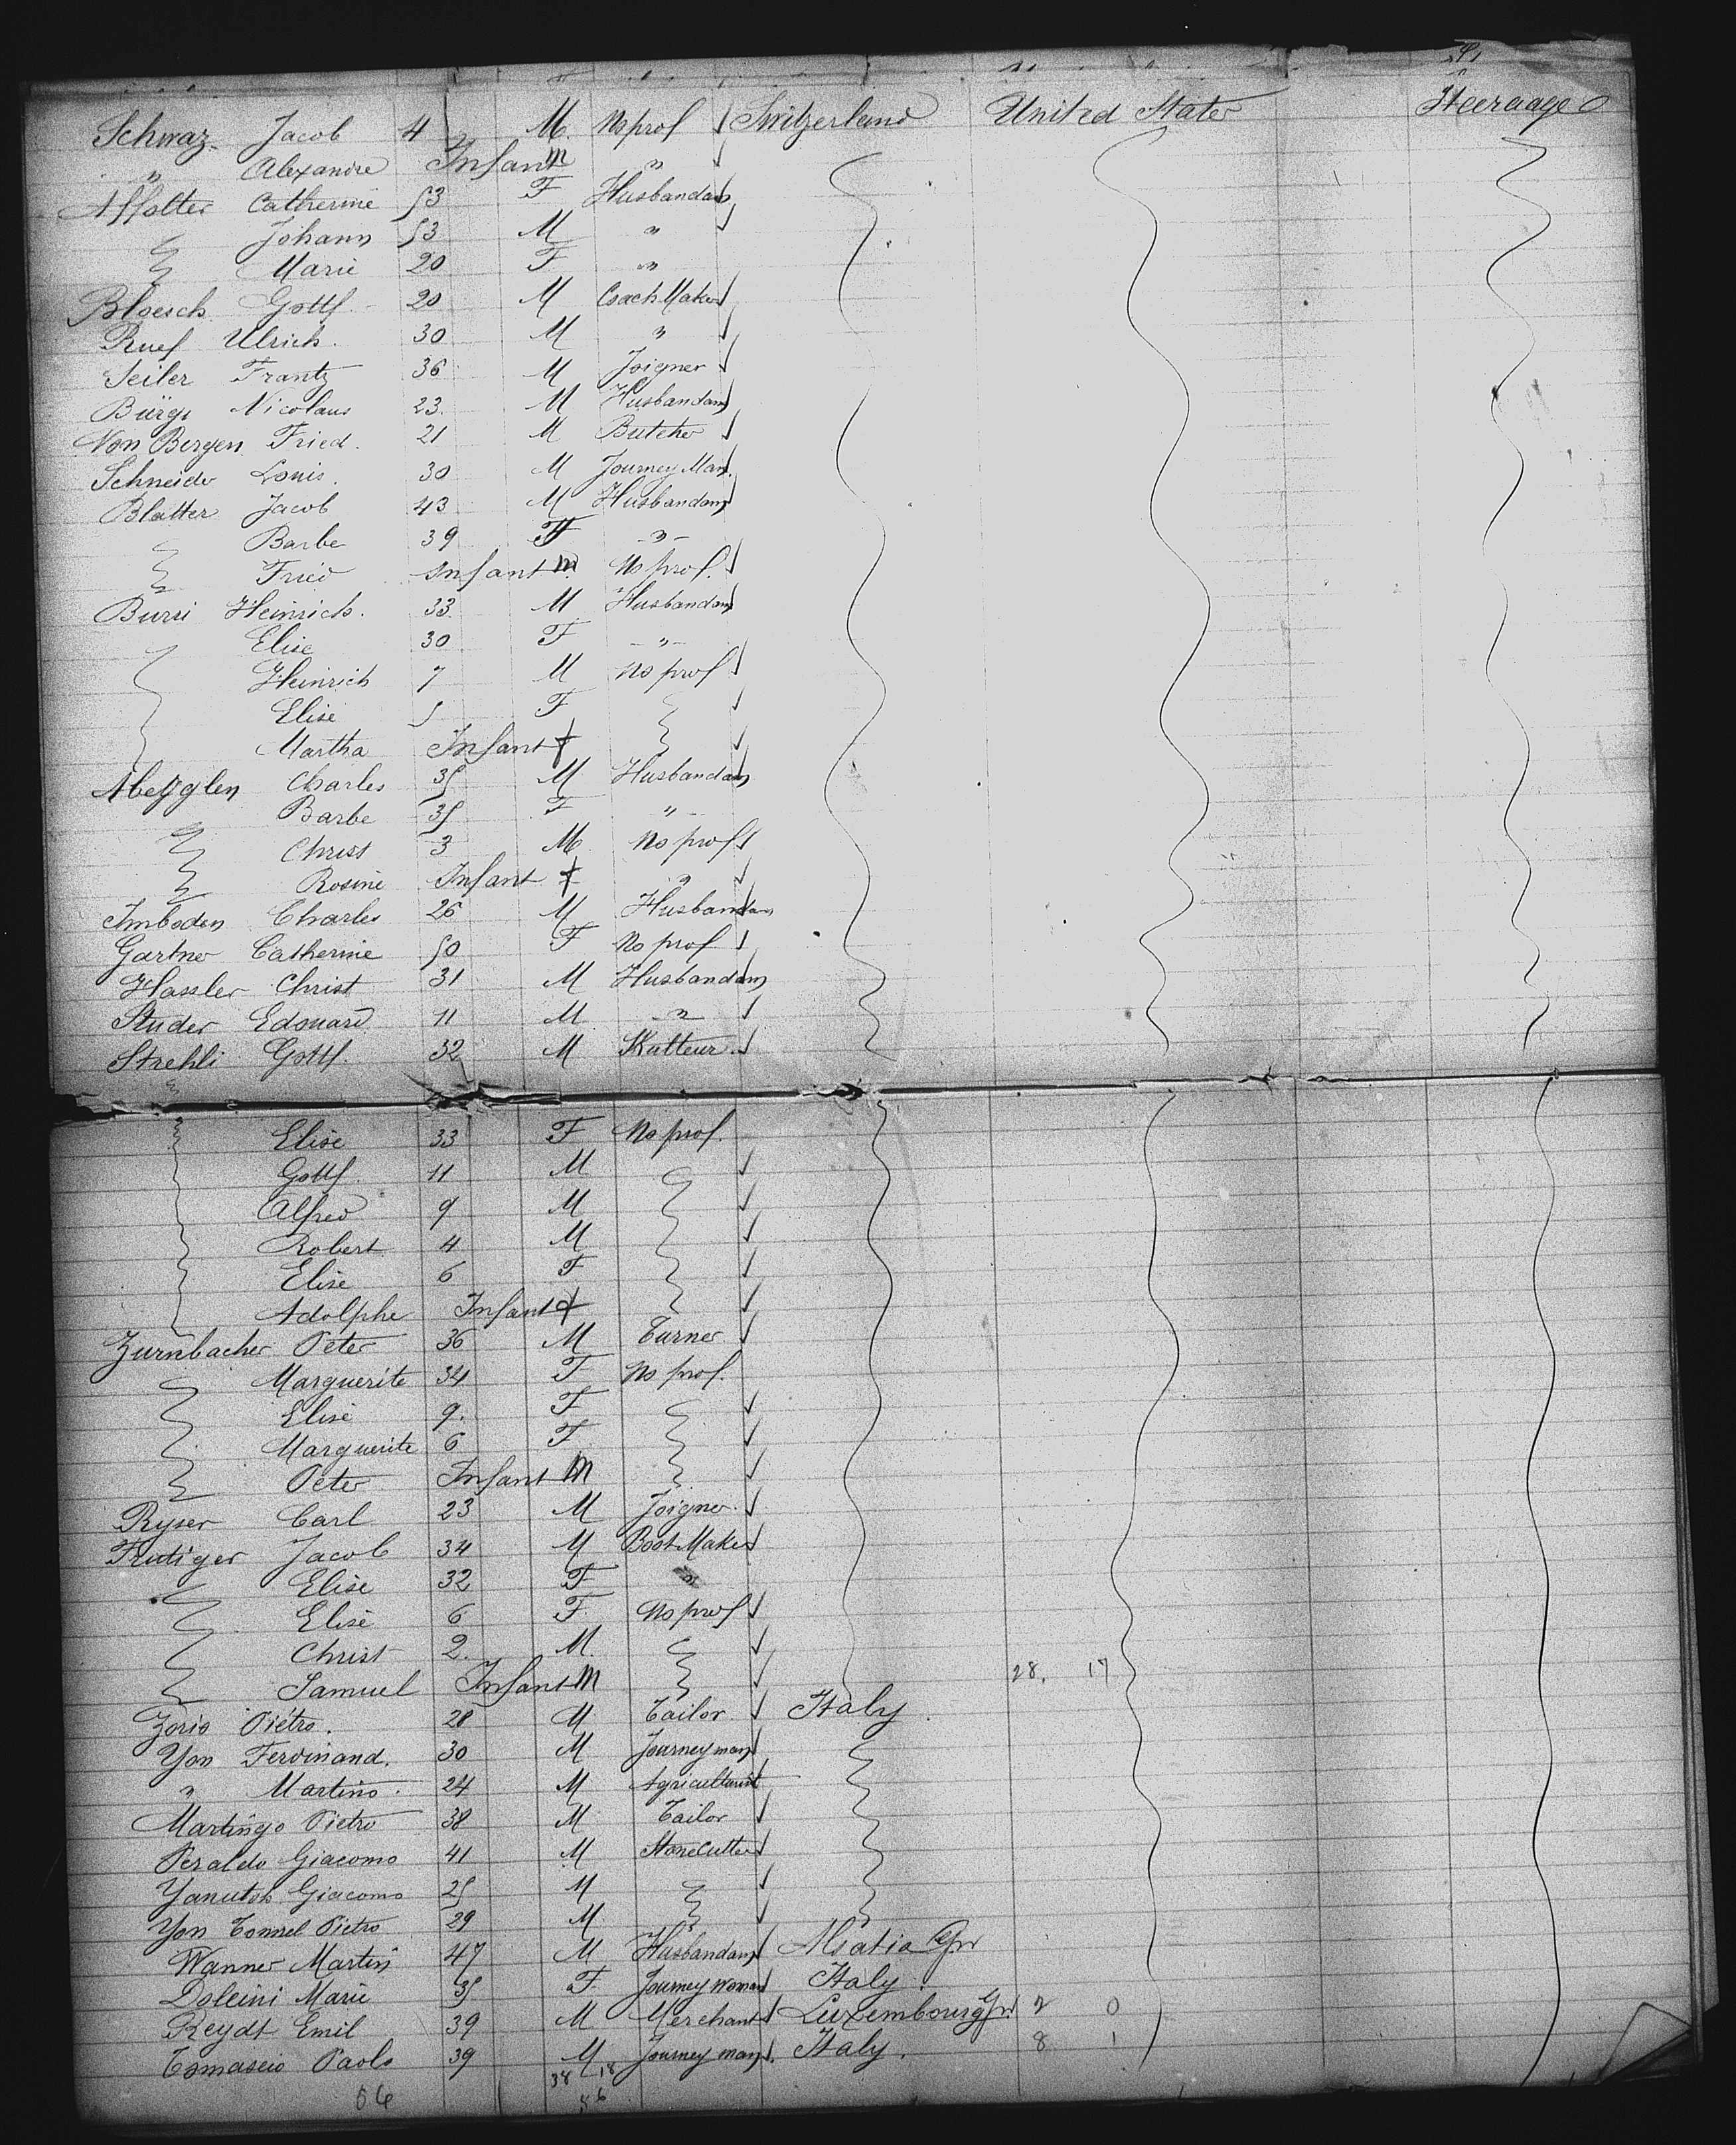 Schwaz Jacob 4 M. No prof Switzerland United States Steerage
" Alexandre Infant m "
Affolter Catherine 53 F Husbandam
Johann 53 M "
Marie 20 F "
Bloesch Gottf. 20 M Coach Maker
Ruef Ulrich. 30 M "
Seiler Frantz 36 M Joigner
Bürgi Nicolaus 23. M Husbandam
Von Bergen Fried. 21 M Butcher
Schneider Louis. 30 M Journey Man.
Blatter Jacob 43 M Husbandam
Barbe 39 F "
Fried Infant m No prof.
Burri Heinrich. 33. M Husbandam
Elise 30 F "
Heinrich 7 M No prof
Elise 5 F
Martha Infant f
Abegglen Charles 35 M Husbandam
Barbe 35 F "
Christ 3 M. No prof
Rosine Infant f "
Imboden Charles 26 M Husbandam
Gartner Catherine 50 F No prof
Hassler Christ 31 M Husbandam
Studer Edouard 11 M "
Strehli Gottf. 32 M Skatteur.
Elise 33 F No prof.
Gottf. 11 M
Alfred 9 M
Robert 4 M
Elise 6 F
Adolphe Infant f
Zurnbacher Peter 36 M Turner
Marguerite 34 F No prof.
Elise 9. F
Marguerite 6 F
Peter Infant M
Ryser Carl 23 M Joigner.
Frutiger Jacob 34 M Boot Maker
Elise 32 F "
Elise 6 F. No prof
Christ 2. M.
Samuel Infant M 28, 17
Zorio Piétro. 28 M Tailor Italy.
Yon Ferdinand. 30 M Journey man
" Martino. 24 M Agriculturist
Martingo Pietro 38 M Tailor
Peraldo Giacomo 41 M Stone Cutter
Giacomo 25 M
Yon Tonnel Pietro 29 M
Wanner Martin 47 M Husbandam Alsatia Gr
Doleini Marie 35 F Journey Woman Italy.
Reydt Emil 39 M Merchant Luxembourg Gr. 2 0
Tomascio Paolo 39 M Journey man. Italy. 8 1
38 18
56 56